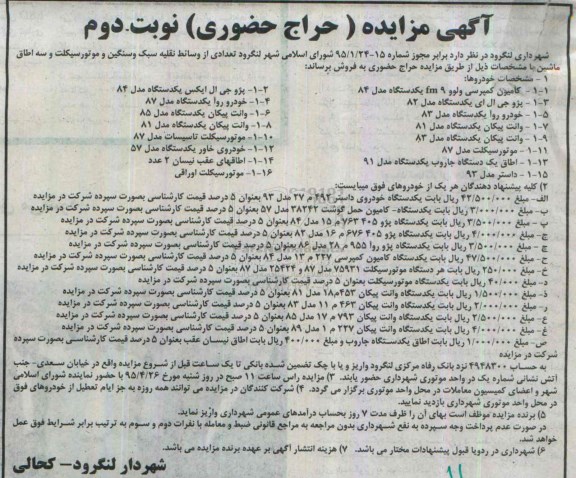 آگهی مزایده ( حراج حضوری) نوبت دوم
شهرداری لنگرود در نظر دارد برابر مجوز شماره ۱۵-۹۵/۱/۲۴ شورای اسلامی شهر لنگرود تعدادی از وسائط نقلیه سبک وسنگین و موتورسیکلت و سه اطاق
ماشین با مشخصات ذیل از طریق مزایده حراج حضوری به فروش برساند:
۱ - مشخصات خودروها:
۱-۱ - کامیون کمپرسی ولوو fm ۹ یکدستگاه مدل ۸۴
۱-۲ - پژو جی ال ایکس یکدستگاه مدل ۸۴
۱-۳ - پژو جی ال ای یکدستگاه مدل ۸۲
۱-۴ - خودرو روا یکدستگاه مدل ۸۷
۱-۵ - خودرو روا یکدستگاه مدل ۸۳
۱-۶ - وانت پیکان یکدستگاه مدل ۸۵
۱-۷ - وانت پیکان یکدستگاه مدل ۸۱
۱-۸ - وانت پیکان یکدستگاه مدل ۸۱
۱-۹ - وانت پیکان یکدستگاه مدل ۸۳
۱-۱۰ - موتورسیکلت تاسیسات مدل ۸۷
۱-۱۱ - موتورسیکلت مدل ۸۷
۱-۱۲ - خودروی خاور یکدستگاه مدل ۵۷
۱-۱۳ - اطاق یک دستگاه جاروب یکدستگاه مدل ۹۱
۱-۱۴ - اطاقهای عقب نیسان ۲ عدد
۱-۱۵ - داستر مدل ۹۳
۱-۱۶ - موتورسیکلت اوراقی
۲) کلیه پیشنهاد دهندگان هر یک از خودروهای فوق میبایست:
الف- مبلغ ۴۳/۵۰۰/۰۰۰ ریال بابت یکدستگاه خودروی داستر ۴۹۲ م ۳۷ مدل ۹۳ بعنوان ۵ درصد قیمت کارشناسی بصورت سپرده شرکت در مزایده
ب- مبلغ ۳/۰۰۰/۰۰۰ ریال بابت یکدستگاه- کامیون حمل گوشت ۳۸۲۴۲ مدل ۵۷ بعنوان ۵ درصد قیمت کارشناسی بصورت سپرده شرکت در مزایده
پ - مبلغ ۳/۵۰۰/۰۰۰ ریال بابت یکدستگاه پژو ۴۰۵ ۷۶۳ م ۱۵ مدل ۸۴ بعنوان ۵ درصد قیمت کارشناسی بصورت سپرده شرکت در مزایده
ج - مبلغ ۴/۰۰۰/۰۰۰ ریال بابت یکدستگاه پژو ۴۰۵ ۶۷۶ م ۱۶ مدل ۸۲ بعنوان ۵ درصد قیمت کارشناسی بصورت سپرده شرکت در مزایده
چ - مبلغ ۳/۵۰۰/۰۰۰ ریال بابت یکدستگاه پژو روا ۹۵۵ م ۲۸ مدل ۸۶ بعنوان ۵ درصد قیمت کارشناسی بصورت سپرده شرکت در مزایده
ح - مبلغ ۴۷/۵۰۰/۰۰۰ ریال بابت یکدستگاه کامیون کمپرسی ۲۴۷ م ۱۳ مدل ۸۴ بعنوان ۵ درصد قیمت کارشناسی بصورت سپرده شرکت در مزایده
خ - مبلغ ۲۵۰/۰۰۰ ریال بابت هر دستگاه موتورسیکلت ۷۵۹۳۱ مدل ۸۷ و ۲۵۴۲۴ مدل ۸۷ بعنوان ۵ درصد قیمت کارشناسی بصورت سپرده شرکت در مزایده
د - مبلغ ۴۰/۰۰۰ ریال بابت یکدستگاه موتورسیکلت بعنوان ۵ درصد قیمت کارشناسی بصورت سپرده شرکت در مزایده
ذ- مبلغ ۱/۵۰۰/۰۰۰ ریال بابت یکدستگاه وانت پیکان ۴۵۳م۱۸ مدل ۸۱ بعنوان ۵ درصد قیمت کارشناسی بصورت سپرده شرکت در مزایده
ر - مبلغ ۲/۰۰۰/۰۰۰ ریال بابت یکدستگاه وانت پیکان ۴۶۳ م ۱۱ مدل ۸۳ بعنوان ۵ درصد قیمت کارشناسی بصورت سپرده شرکت در مزایده
ع - مبلغ ۲/۵۰۰/۰۰۰ ریال بابت یکدستگاه وانت پیکان ۷۹۳ م ۱۷ مدل ۸۵ بعنوان ۵ درصد قیمت کارشناسی بصورت سپرده شرکت در مزایده
غ - مبلغ ۴/۰۰۰/۰۰۰ ریال بابت یکدستگاه وانت پیکان ۲۲۷ م ۱ مدل ۸۹ بعنوان ۵ درصد قیمت کارشناسی بصورت سپرده شرکت در مزایده
ص- مبلغ ۱/۰۰۰/۰۰۰ ریال بابت اطاق یکدستگاه جاروب و مبلغ ۴۰۰/۰۰۰ ریال بابت اطاق نیسان عقب بعنوان ۵ درصد قیمت کارشناسی بصورت سپرده
شرکت در مزایده
به حساب ۴۹۴۸۳۰۰ نزد بانک رفاه مرکزی لنگرود واریز و یا با چک تضمین شده بانکی تا یک ساعت قبل از شروع مزایده واقع در خیابان سعدی- جنب
آتش نشانی شماره یک در واحد موتوری شهرداری حضور یابند. ۳) مزایده راس ساعت ۱۱ صبح در روز شنبه مورخ ۹۵/۴/۲۶ با حضور نماینده شورای اسلامی
شهر و اعضای کمیسیون معاملات در محل واحد موتوری برگزار می گردد. ۴) شرکت کنندگان در مزایده می توانند همه روزه به جز ایام تعطیل از خودروهای فوق
در محل واحد موتوری شهرداری بازدید نمایند.
۵) برنده مزایده موظف است بهای آن را ظرف مدت ۷ روز بحساب درآمدهای عمومی شهرداری واریز نماید.
در صورت عدم پرداخت وجه سپرده به نفع شهرداری بدون مراجعه به مراجع قانونی ضبط و معامله با نفرات دوم و سوم به ترتیب برابر شرایط فوق عمل
خواهد شد.
۶) شهرداری در ردویا قبول پیشنهادات مختار می باشد. ۷) هزینه انتشار آگهی بر عهده برنده مزایده می باشد.
شهردار لنگرود- کحالی